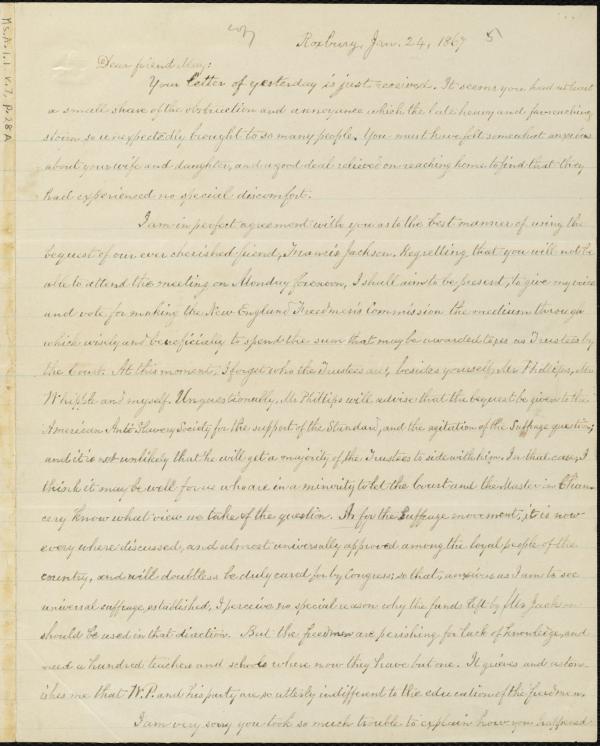 Ms.A.1.1 v.7, p.28A
Roxbury, Jan. 24, 1867
5
Dear friend May:
Your letter of yesterday is just received. It seems you had at least
a small share of the obstruction and annoyance which the late heavy and far-reaching
storm so unexpectedly brought to so many people. You must have felt somewhat anxious
about your wife and daughter, and a good deal relieved on reaching home to find that they
had experienced no special discomfort.
I am in perfect agreement with you as to the best manner of using the
bequest of our ever cherished friend, Francis Jackson. Regretting that you will not be
able to attend the meeting on Monday forenoon, I shall aim to be present, to give my voice
and vote for making the New England Freedmen's Commission the medium through
which wisely and beneficially to spend the sum that may be awarded to us as Trustees by
the Court. At this moment, I forget who the Trustees are, besides yourself, Mr Phillips, Mr
Whipple and myself. Unquestionably, Mr Phillips will advise that the bequest be given to the
American Anti-Slavery Society for the support of the Standard, and the agitation of the Suffrage question;
and it is not unlikely that he will get a majority of the Trustees to side with him. In that case, I
think it may be well for us who are in a minority to let the Court and the Master in Chan-
cery know what view we take of the question. As for the Suffrage movement, it is now
every where discussed, and almost universally approved among the loyal people of the
country, and will doubtless be duly cared for by Congress; so that, anxious as I am to see
universal suffrage established, I perceive no special reason why the funds left by Mr Jackson
should be used in that direction. But the freedmen are perishing for lack of knowledge, and
need a hundred teachers and schools where now they have but one. It grieves and aston-
ishes me that W.P. and his party are so utterly indifferent to the education of the freedmen.
I am very sorry you took so much trouble to explain how you happened